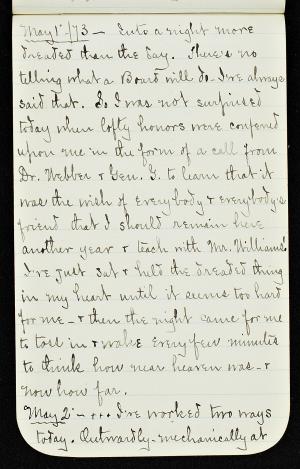 May 1st/73 — Into a night more
dreaded than the day. There's no
telling what a Board will do - I've always
said that. So I was not surprised
today when lofty honors were confered
upon me in the form of a call from
Dr. Webber & Gen. G. to learn that it
was the wish of everybody & everybody's
friend that I should remain here
another year & teach with Mr. Williams.
I've just sat & held the dreaded thing
in my heart until it seems too hard
for me - & then the night came for me
to toss in & wake every few minutes
to think how near heaven was - &
now how far.
May 2 - + + + I've worked two ways
today. Outwardly - mechanically at